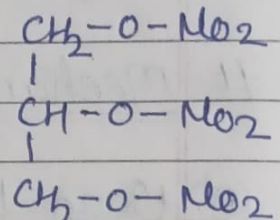 CH₂-O-NO2
|
CH-O-NO2
|
CH₂-O-NO2